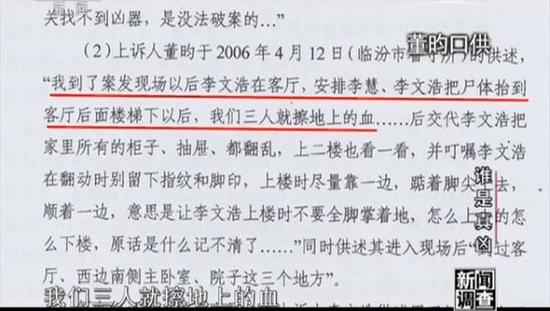 新闻
关找不到凶器，是没法破案的…”
董昀口供
(2)上诉人董昀于 2006 年 4 月 12 日(临汾市看守所)的供述，
“我到了案发现场以后李文浩在客厅，安排李慧、李文浩把尸体抬到
客厅后面楼梯下以后，我们三人就擦地上的血……后交代李文浩把
家里所有的柜子、抽屉、都翻乱，上二楼也看一看，并叮嘱李文浩
在翻动时别留下指纹和脚印，上楼时尽量靠一边，踮着脚尖 去，
顺着一边，意思是让李文浩上楼时不要全脚掌着地，怎么上 的怎
么下楼，原话是什么记不清了……”同时供述其进入现场后“ 过客
厅、西边南侧主卧室、院子这三个地方”。
谁是真凶
新闻
调查
我们三人就擦地上的血